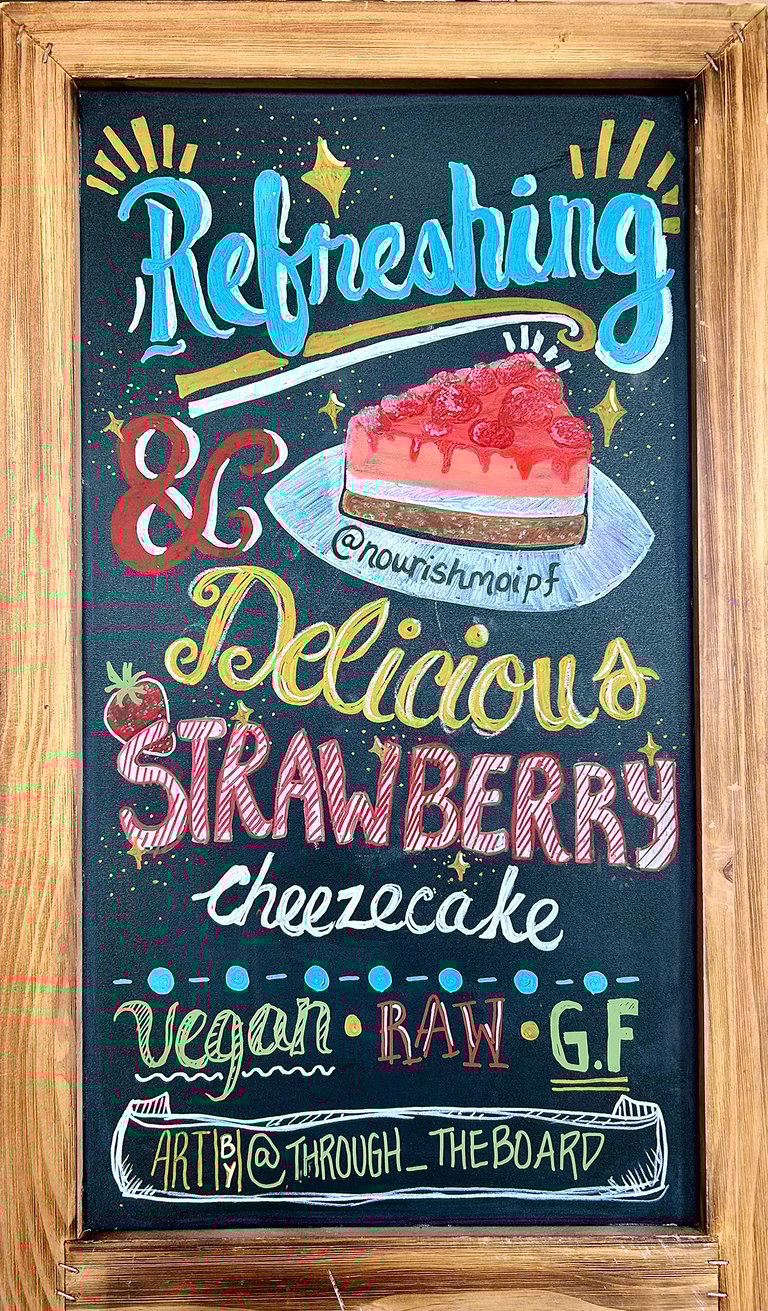 Refreshing
&
@nourishmoipf
Delicious
STRAWBERRY
cheezecake
vegan • RAW • G.F
ART BY @THROUGH_THEBOARD